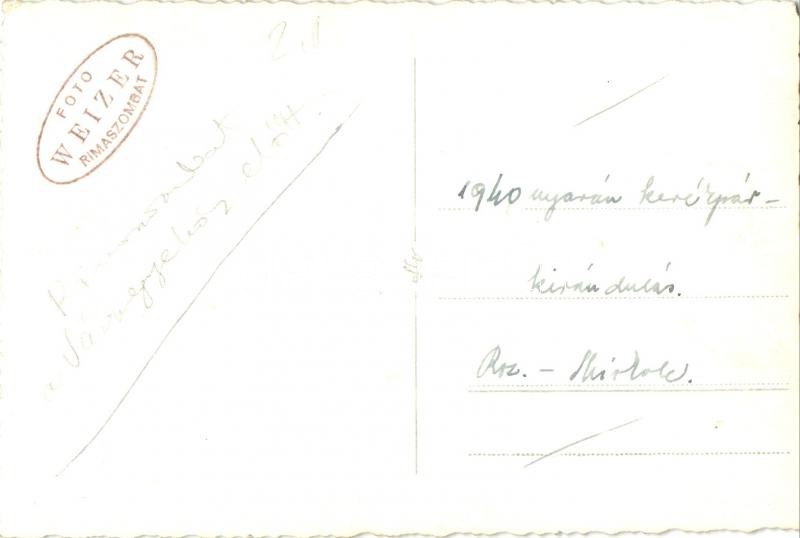 FOTO
WEIZER
RIMASZOMBAT
Rimaszombat
a Vármegyeház előtt
1940 nyarán kerékpár-
kirándulás.
Roz. - Miskolc.